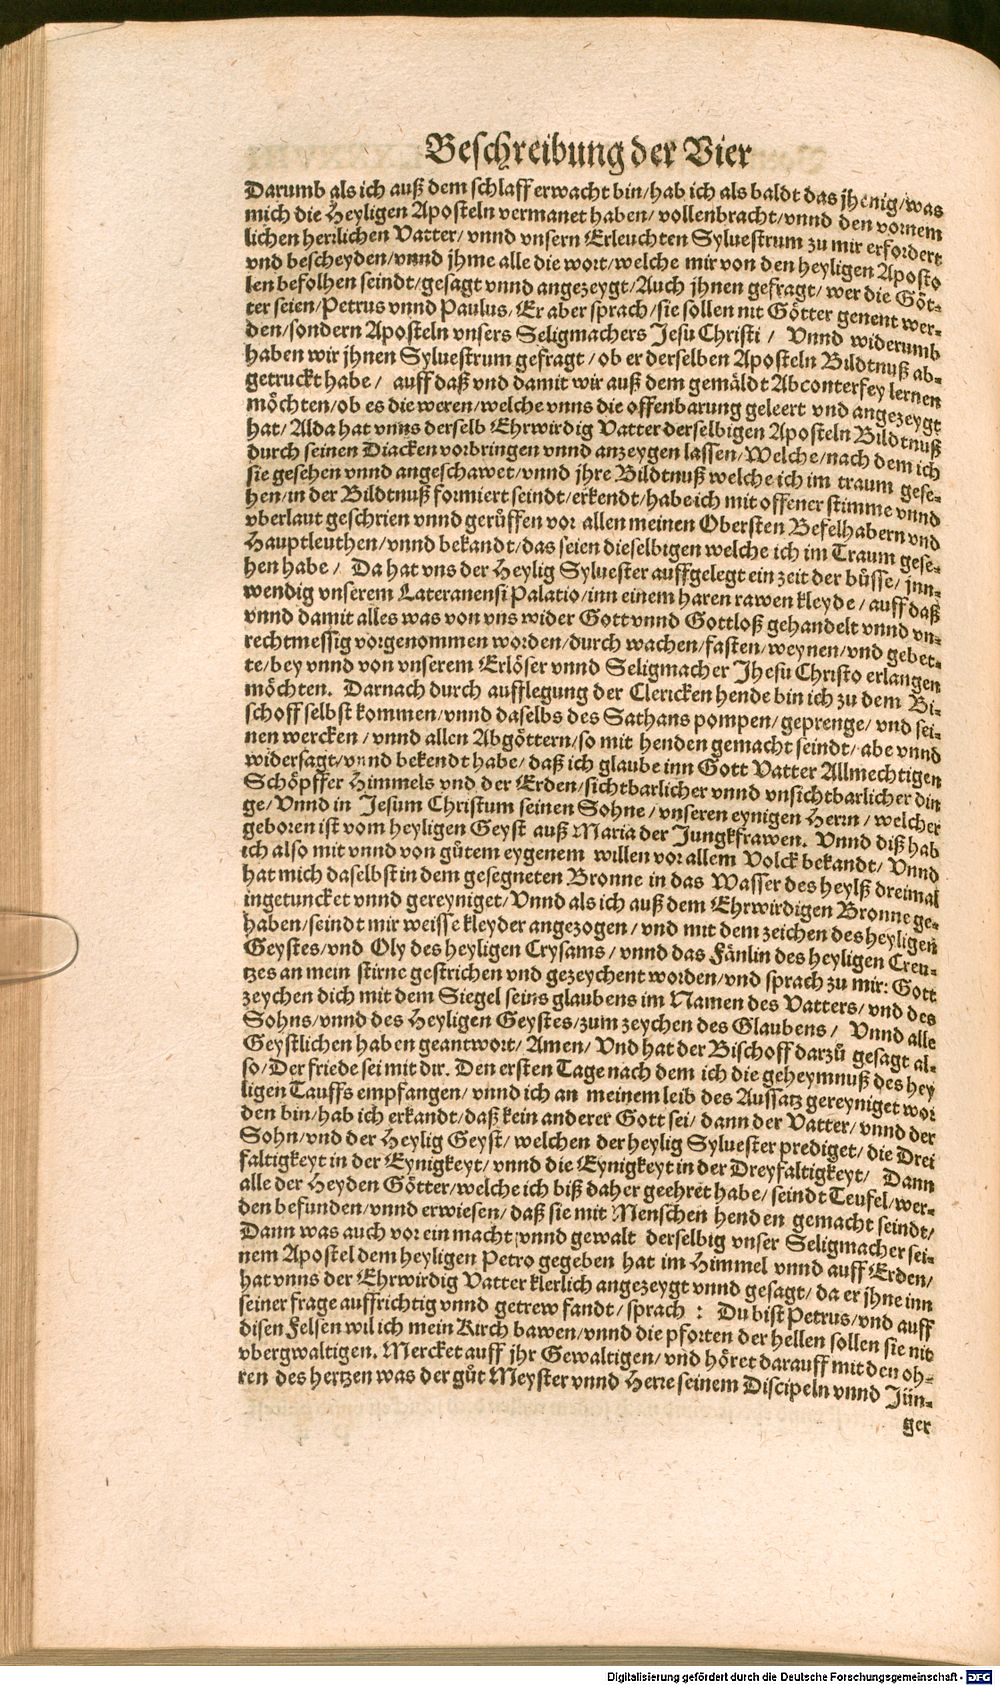 Beschreibung der Vier
Darumb als ich auß dem schlaff erwacht bin/hab ich als baldt das jhenig/was
mich die Heyligen Aposteln vermanet haben/ vollenbracht/vnnd den vornem
lichen herrlichen Vatter/ vnnd vnsern Erleuchten Syluestrum zu mir erfordert
vnd bescheyden/vnnd jhme alle die wort/welche mir von den heyligen Aposto
len befolhen seindt/gesagt vnnd angezeygt/Auch jhnen gefragt/ wer die Göt-
ter seien/Petrus vnnd Paulus/ Er aber sprach/sie sollen nit Götter genent wer-
den/sondern Aposteln vnsers Seligmachers Jesu Christi / Vnnd widerumb
haben wir jhnen Syluestrum gefragt/ob er derselben Aposteln Bildtnuß ab-
getruckt habe/ auff daß vnd damit wir auß dem gemäldt Abconterfey lernen
möchten/ob es die weren/welche vnns die offenbarung geleert vnd angezeygt
hat/ Alda hat vnns derselb Ehrwirdig Vatter derselbigen Aposteln Bildtnuß
durch seinen Diacken vorbringen vnnd anzeygen lassen/Welche/nach dem ich
sie gesehen vnnd angeschawet/vnnd jhre Bildtnuß welche ich im traum gese-
hen/in der Bildtnuß formiert seindt/erkendt/habe ich mit offener stimme vnnd
vberlaut geschrien vnnd gerůffen vor allen meinen Obersten Befelhabern vnd
Hauptleuthen/vnnd bekandt/das seien dieselbigen welche ich im Traum gese-
hen habe/ Da hat vns der Heylig Syluester auffgelegt ein zeit der bůsse/ jnn-
wendig vnserem Lateranensi Palatio/inn einem haren rawen kleyde/ auff daß
vnnd damit alles was von vns wider Gott vnnd Gottloß gehandelt vnnd vn-
rechtmessig vorgenommen worden/durch wachen/fasten/weynen/vnd gebet-
te/bey vnnd von vnserem Erlöser vnnd Seligmacher Jhesu Christo erlangen
möchten. Darnach durch aufflegung der Clericken hende bin ich zu dem Bi-
schoff selbst kommen/vnnd daselbs des Sathans pompen/geprenge/ vnd sei-
nen wercken/vnnd allen Abgöttern/so mit henden gemacht seindt/ abe vnnd
widersagt/vnnd bekendt habe/ daß ich glaube inn Gott Vatter Allmechtigen
Schöpffer Himmels vnd der Erden/sichtbarlicher vnnd vnsichtbarlicher din
ge/Vnnd in Jesum Christum seinen Sohne/vnseren eynigen Herrn/ welcher
geboren ist vom heyligen Geyst auß Maria der Jungkfrawen. Vnnd diß hab
ich also mit vnnd von gůtem eygenem willen vor allem Volck bekandt/ Vnnd
hat mich daselbst in dem gesegneten Bronne in das Wasser des heylß dreimal
ingetuncket vnnd gereyniget/Vnnd als ich auß dem Ehrwirdigen Bronne ge-
haben/seindt mir weisse kleyder angezogen/ vnd mit dem zeichen des heyligen
Geystes/vnd Oly des heyligen Crysams/ vnnd das Fänlin des heyligen Creu-
tzes an mein stirne gestrichen vnd gezeychent worden/vnd sprach zu mir: Gott
zeychen dich mit dem Siegel seins glaubens im Namen des Vatters/ vnd des
Sohns/vnnd des Heyligen Geystes/zum zeychen des Glaubens/ Vnnd alle
Geystlichen haben geantwort/ Amen/ Vnd hat der Bischoff darzů gesagt al-
so/ Der friede sei mit dir. Den ersten Tage nach dem ich die geheymnuß des hey
ligen Tauffs empfangen/ vnnd ich an meinem leib des Aussatz gereyniget wor
den bin/hab ich erkandt/daß kein anderer Gott sei/ dann der Vatter/ vnnd der
Sohn/vnd der Heylig Geyst/ welchen der heylig Syluester prediget/ die Drei
faltigkeyt in der Eynigkeyt/ vnnd die Eynigkeyt in der Dreyfaltigkeyt/ Dann
alle der Heyden Götter/welche ich biß daher geehret habe/ seindt Teufel/wer-
den befunden/vnnd erwiesen/ daß sie mit Menschen henden gemacht seindt/
Dann was auch vor ein macht vnnd gewalt derselbig vnser Seligmacher sei-
nem Apostel dem heyligen Petro gegeben hat im Himmel vnnd auff Erden/
hat vnns der Ehrwirdig Vatter klerlich angezeygt vnnd gesagt/ da er jhne inn
seiner frage auffrichtig vnnd getrew fandt/ sprach : Du bist Petrus/vnd auff
disen Felsen wil ich mein Kirch bawen/vnnd die pforten der hellen sollen sie nit
vbergwaltigen. Mercket auff jhr Gewaltigen/ vnd höret darauff mit den oh-
ren des hertzen was der gůt Meyster vnnd Herre seinem Discipeln vnnd Jün-
ger
Digitalisierung gefördert durch die Deutsche Forschungsgemeinschaft - DFG